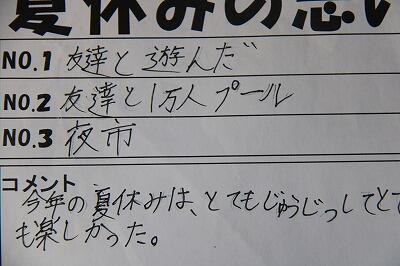 夏休みの思い
NO.1 友達と遊んだ
NO.2 友達と1万人プール
NO.3 夜市
コメント
今年の夏休みは、とてもじゅうじつしてとて
も楽しかった。